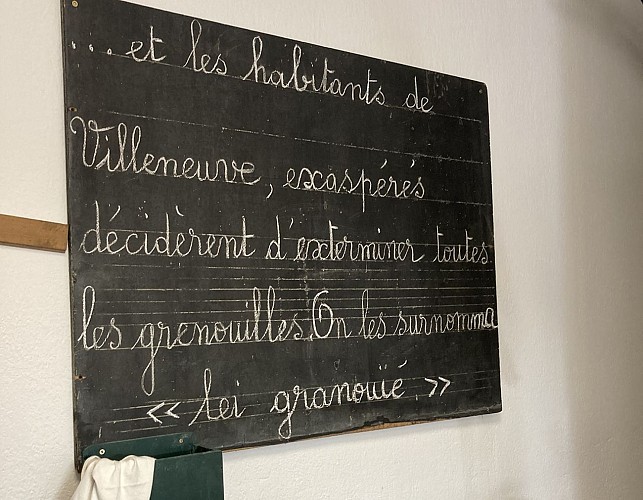 ...et les habitants de
Villeneuve, exaspérés
décidèrent d'exterminer toutes
les grenouilles. On les surnomma
« lei granouié. »